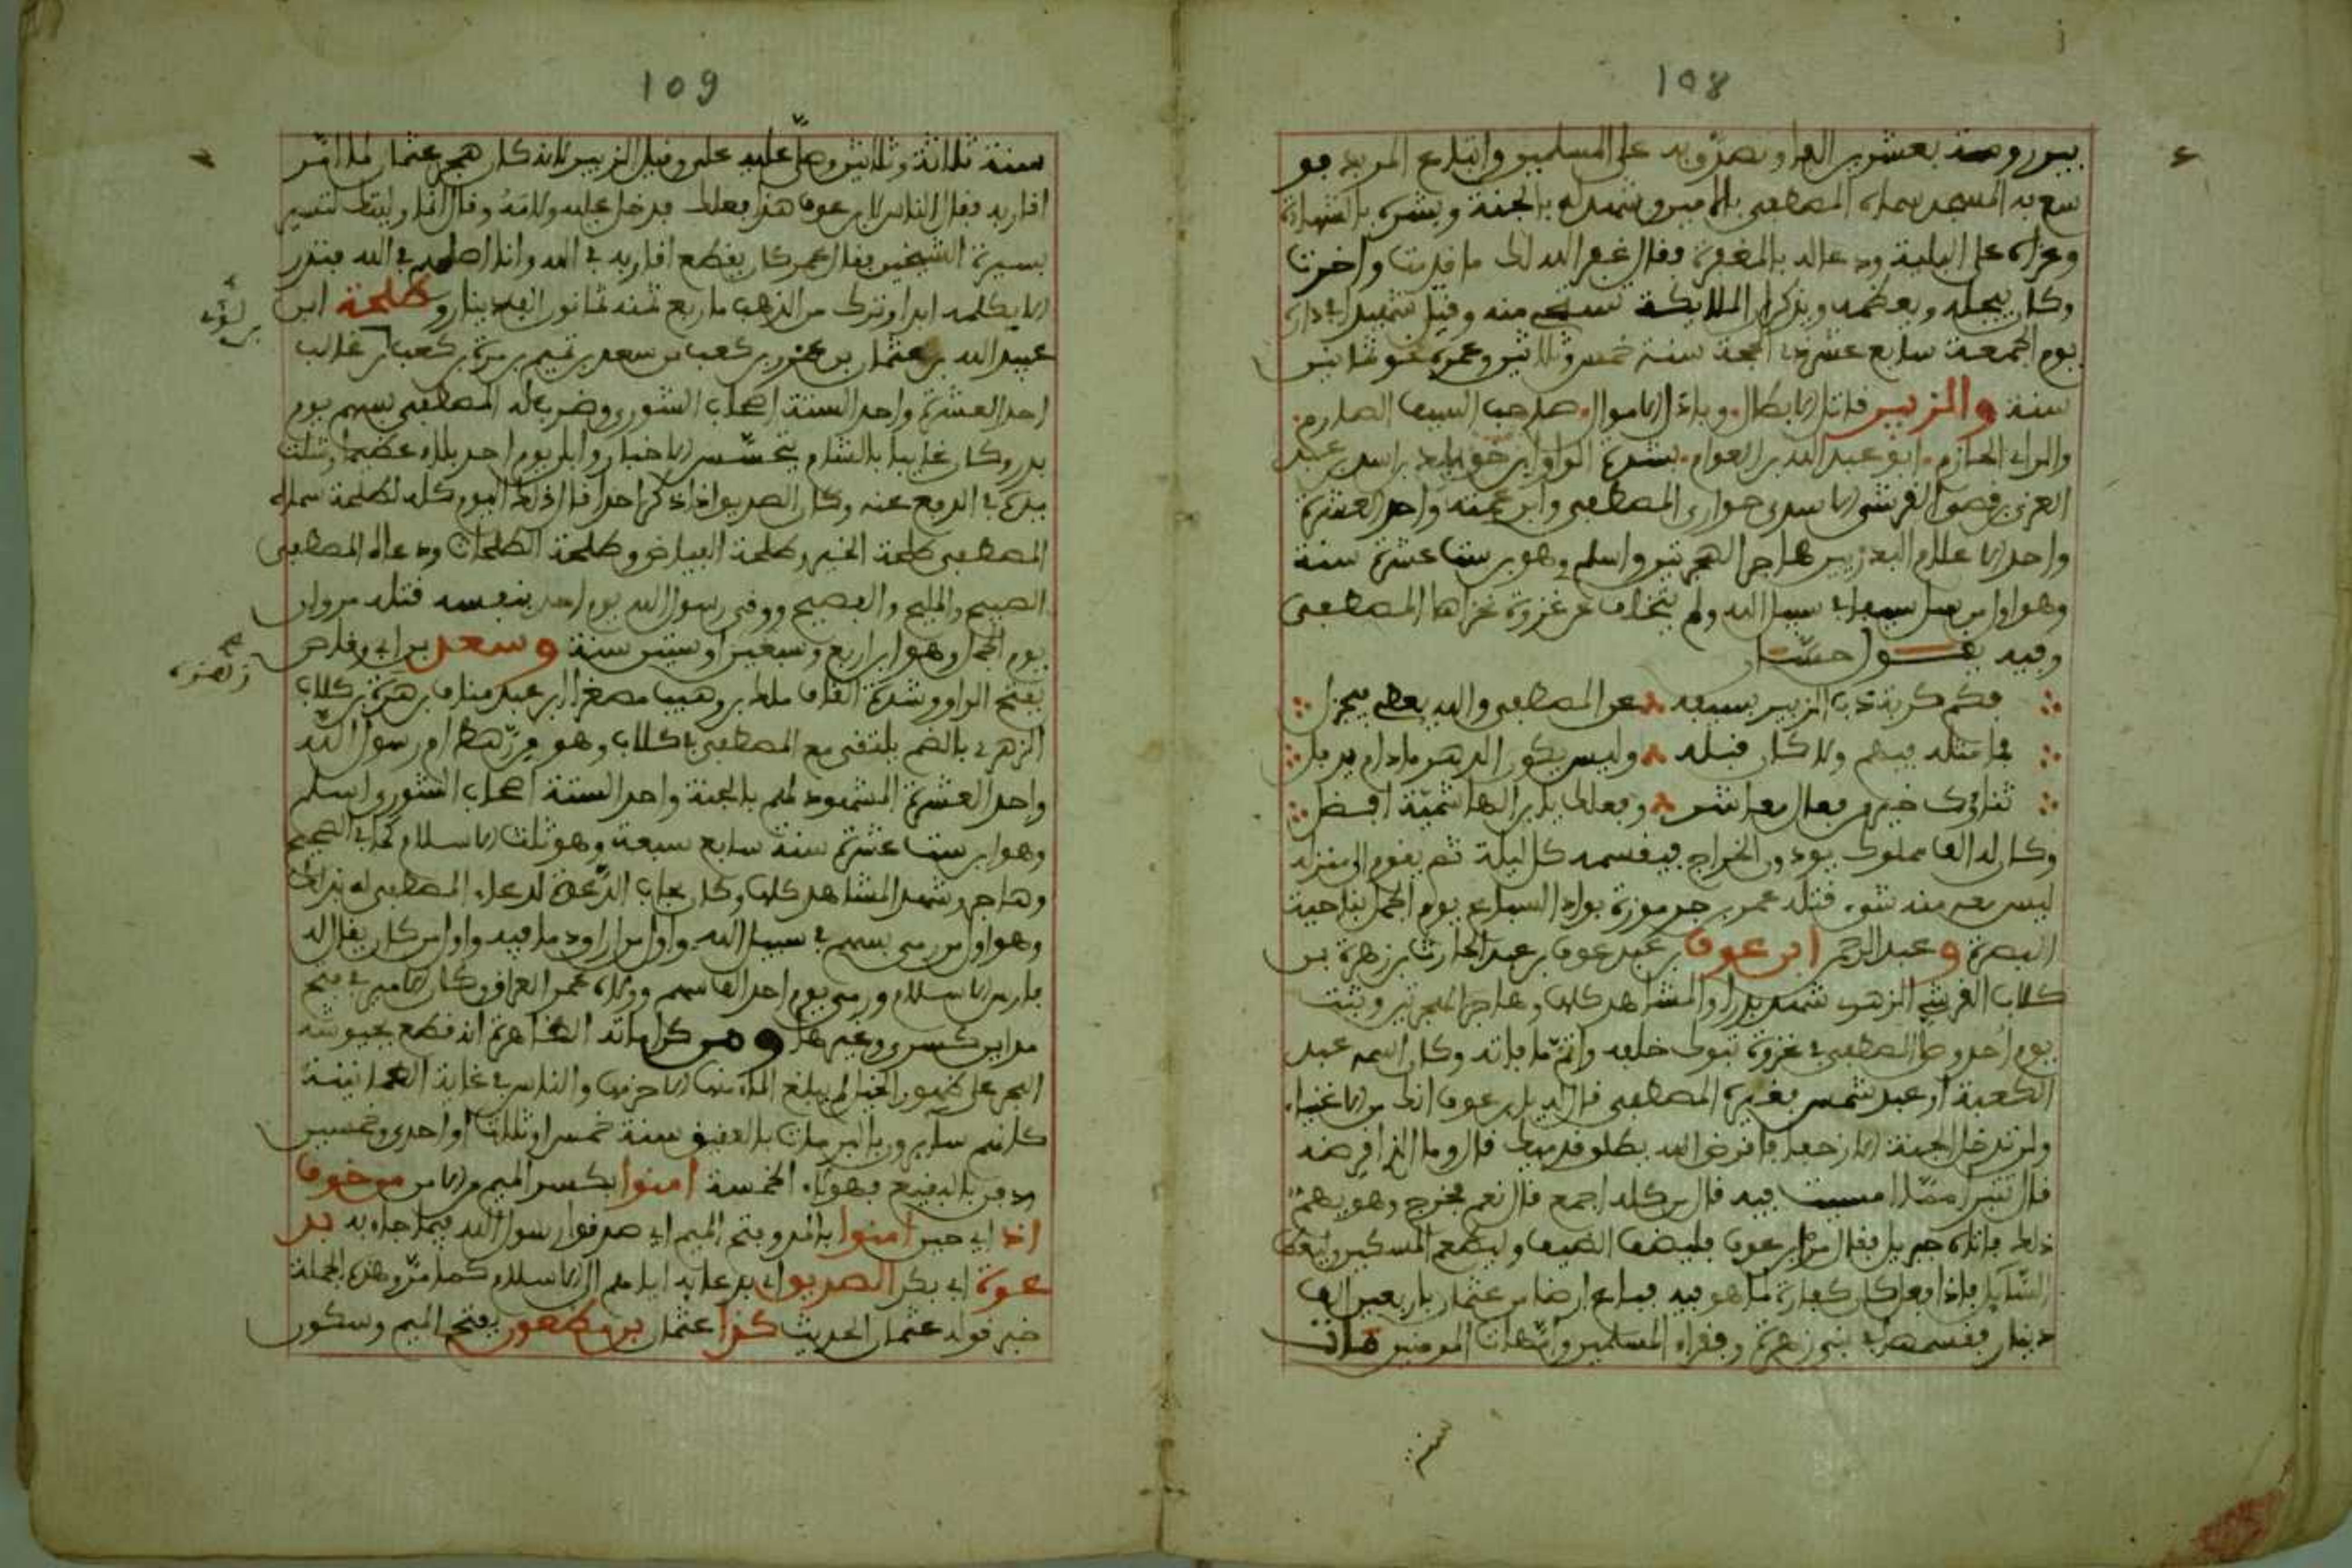 108
بير رومة بعشرين الفا وتصدق به على المسلمين وابتاع المربد فو
سع به المسجد سماه المصطفى بالامين وشهد له بالجنة وبشره بالشهادة
وعزاه على البلية ودعا له بالمغفرة فقال غفر الله لك ما قدمت واخرت
وكان يجله ويعظمه ويذكر ان الملايكة تستحي منه وقتل شهيدا في داره
يوم الجمعة سابع عشر ذي الحجة سنة خمس وثلاثين وعمره نحو ثمانين
سنة والزبير قاتل الابطال وباذل الاموال صاحب السيف الصارم
والراي الحازم ابو عبد الله بن العوام بشدة الواو ابن خويلد بن اسد بن عبد
العزى بن قصي القرشي الاسدي حواري المصطفى وابن عمته واحد العشرة
واحد الاعلام البدريين هاجر الهجرتين واسلم وهو ابن ست عشرة سنة
وهو اول من سل سيفا في سبيل الله ولم يتخلف عن غزوة غزاها المصطفى
وفيه يقول حسان
فكم كربة ذب الزبير بسيفه عن المصطفى والله يعطي فيجزل
فما مثله فيهم ولا كان قبله وليس يكون الدهر ما دام يذبل
ثناؤك خير من فعال معاشر وفعلك يا ابن الهاشمية افضل
وكان له الف مملوك يودون الخراج فيقسمه كل ليلة ثم يقوم الى منزله
ليس معه منه شيء قتله عمرو بن جرموزة بوادي السباع يوم الجمل بناحية
البصرة وعبد الرحمن ابن عوف بن عبد عوف بن عبد الحارث بن زهرة بن
كلاب القرشي الزهري شهد بدرا والمشاهد كلها وهاجر الهجرتين وثبت
يوم احد وصلى المصطفى في غزوة تبوك خلفه واتم ما فاته وكان اسمه عبد
الكعبة او عبد شمس فغيره المصطفى قال له يا ابن عوف انك من الاغنياء
ولن تدخل الجنة الا زحفا فاقرض الله يطلق قدميك قال وما الذي اقرضه
قال تتبرا مما امسيت فيه قال من كله اجمع قال نعم فخرج وهو يهم
ذلك فاتاه جبريل فقال مر ابن عوف فليضف الضيف وليطعم المسكين وليعط
السايل فاذا فعل كان كفارة لما هو فيه فباع ارضا من عثمان باربعين الف
دينار فقسمها في بني زهرة وفقراء المسلمين وامهات المومنين مات
سنة
109
سنة ثلاثة وثلاثين وصلى عليه علي وقيل الزبير لانه كان هجر عثمان لما امر
اقاربه فقال الناس لابن عوف هذا فعلك فدخل عليه ولامه وقال انما وليتك لتسير
بسيرة الشيخين فقال عمر كان يقطع اقاربه في الله وانا اصلهم في الله فنذر
الا يكلمه ابدا وترك من الذهب ما ربع ثمنه ثمانون الف دينار وطلحة ابن
عبيد الله بن عثمان بن عمرو بن كعب بن سعد بن تيم بن مرة بن كعب بن غالب
بن لؤي
احد العشرة واحد الستة اصحاب الشورى وضرب له المصطفى بسهم يوم
بدر وكان غايبا بالشام يتجسس الاخبار وابلى يوم احد بلاء عظيما وشلت
يده في الدفع عنه وكان الصديق اذا ذكر احدا قال ذلك اليوم كله لطلحة سماه
المصطفى طلحة الخير وطلحة الفياض وطلحة الطلحات ودعاه المصطفى
الصبيح والمليح والفصيح ووقى رسول الله يوم احد بنفسه قتله مروان
يوم الجمل وهو ابن اربع وستين او ستين سنة وسعد بن ابي وقاص
بفتح الواو وشدة القاف مالك بن وهيب مصغرا ابن عبد مناف بن زهرة بن كلاب
الزهري بالضم يلتقي مع المصطفى في كلاب وهو من رهط ام رسول الله
واحد العشرة المشهود لهم بالجنة واحد الستة اصحاب الشورى واسلم
وهو ابن ست عشرة سنة سابع سبعة وهو ثلث الاسلام كما في الصحيح
وهاجر وشهد المشاهد كلها وكان مجاب الدعوة لدعاء المصطفى له بذلك
وهو اول من رمى بسهم في سبيل الله واول من اراق دما فيه واول من كان يقال له
فارس الاسلام ورمى يوم احد الف سهم وولاه عمر العراق وكان الامير في فتح
مداين كسرى وغيرها ومن كراماته الظاهرة انه قطع بجيوشه
البحر على ظهور الخيل لم يبلغ الماء منها الا حزمها والناس في غاية الطمانينة
كانهم سايرون بالبر مات بالعقيق سنة خمس او ثلاث او احدى وخمسين
ودفن بالبقيع فهولاء الخمسة امنوا بكسر الميم من الامن من خوف
اذ اي حين امنوا بالمد وفتح الميم اي صدقوا رسول الله فيما جاء به بد
عوة ابي بكر الصديق اي بدعايه اياهم الى الاسلام كما مر وهذه الجملة
خبر قوله عثمان الحديث كذا عثمان بن مظعون بفتح الميم وسكون